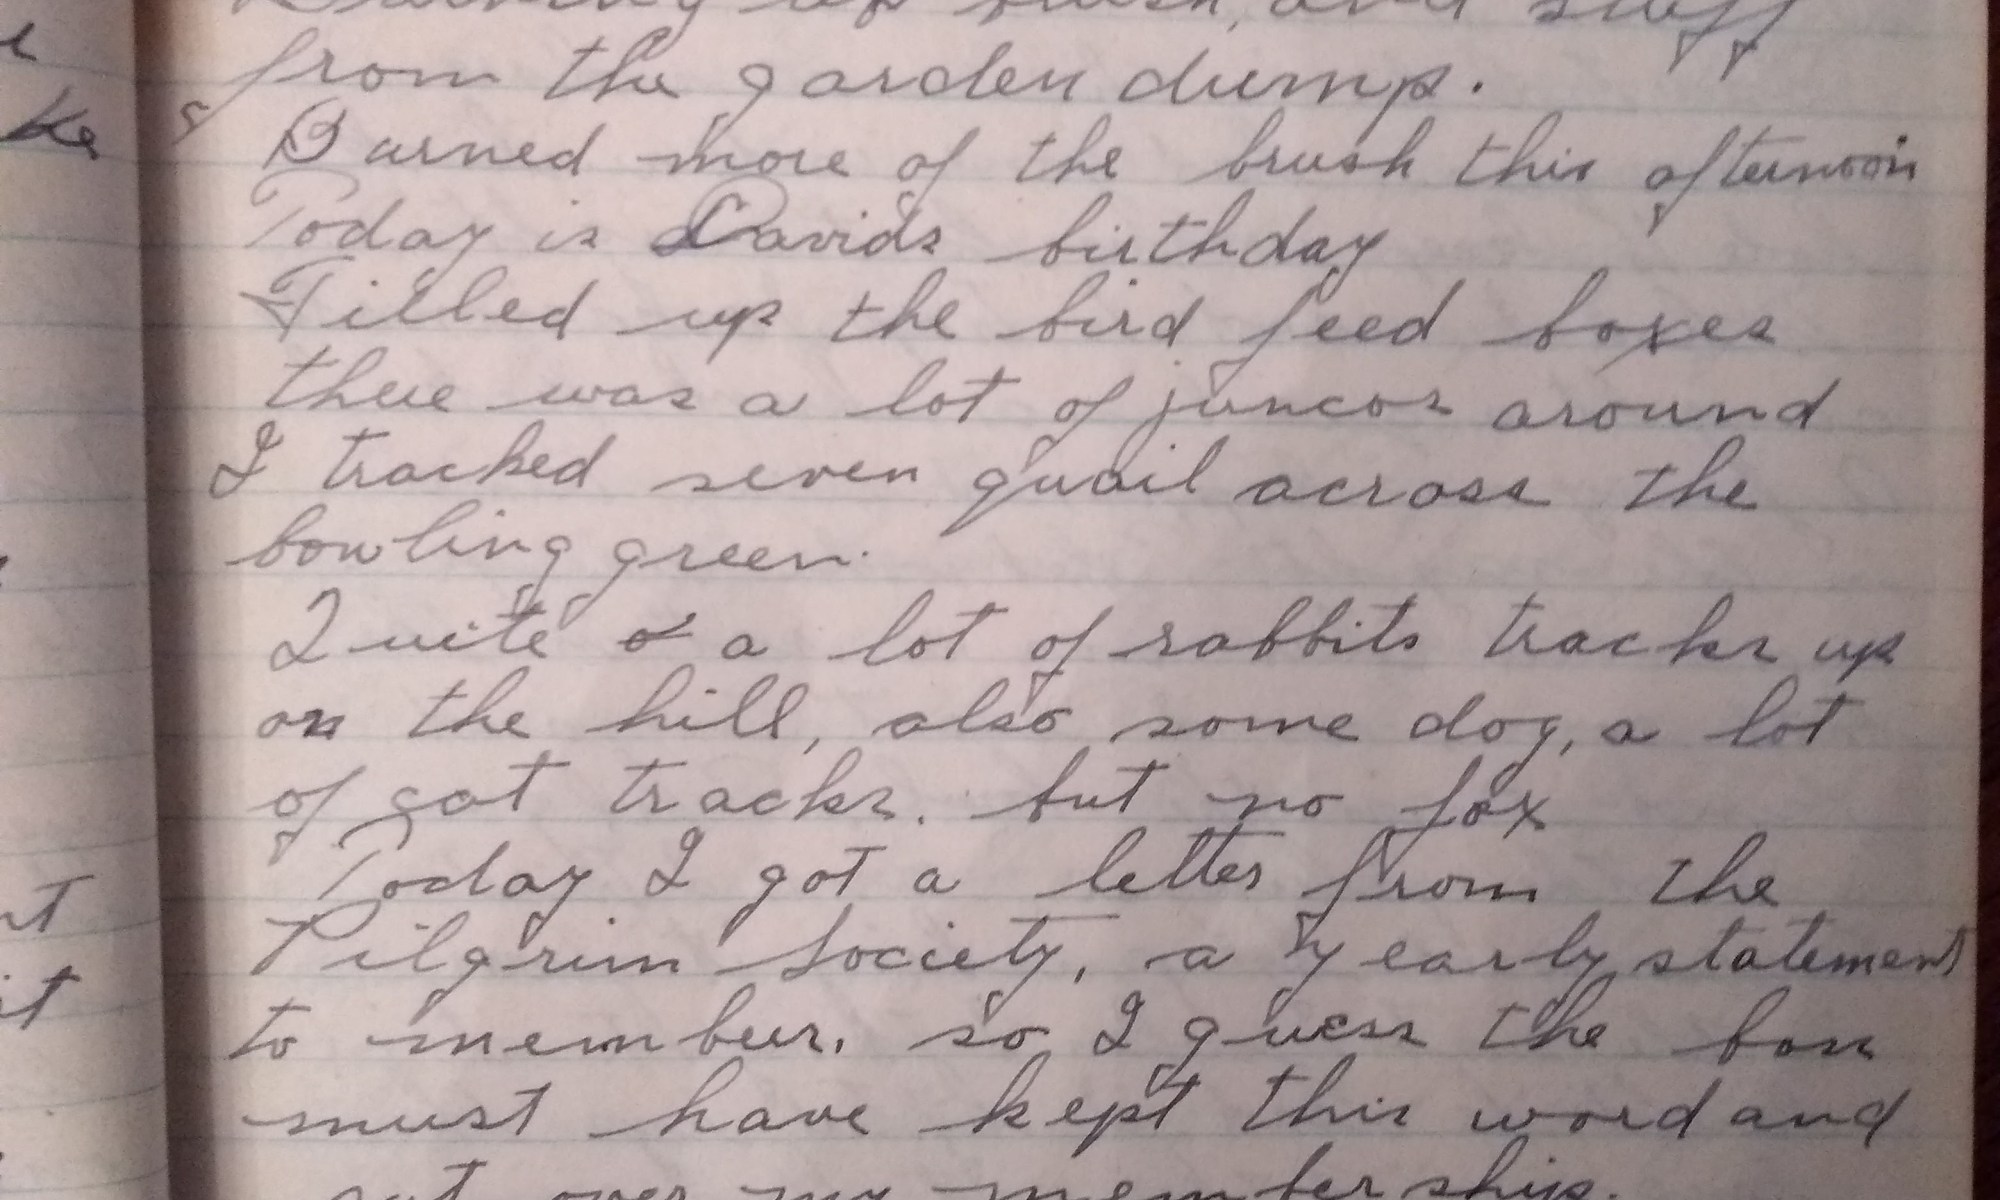 up brush, and stuff
from the garden dump.
Burned more of the brush this afternoon
Today is Davids birthday
Filled up the bird feed boxes
there was a lot of juncos around
I tracked seven quail across the
bowling green.
Quite a lot of rabbits tracks up
on the hill, also some dog, a lot
of cat tracks. but no fox
Today I got a letter from the
Pilgrim Society, a yearly statement
to member. so I guess the boss
must have kept this word and
put over my membership.
ke
nt
it